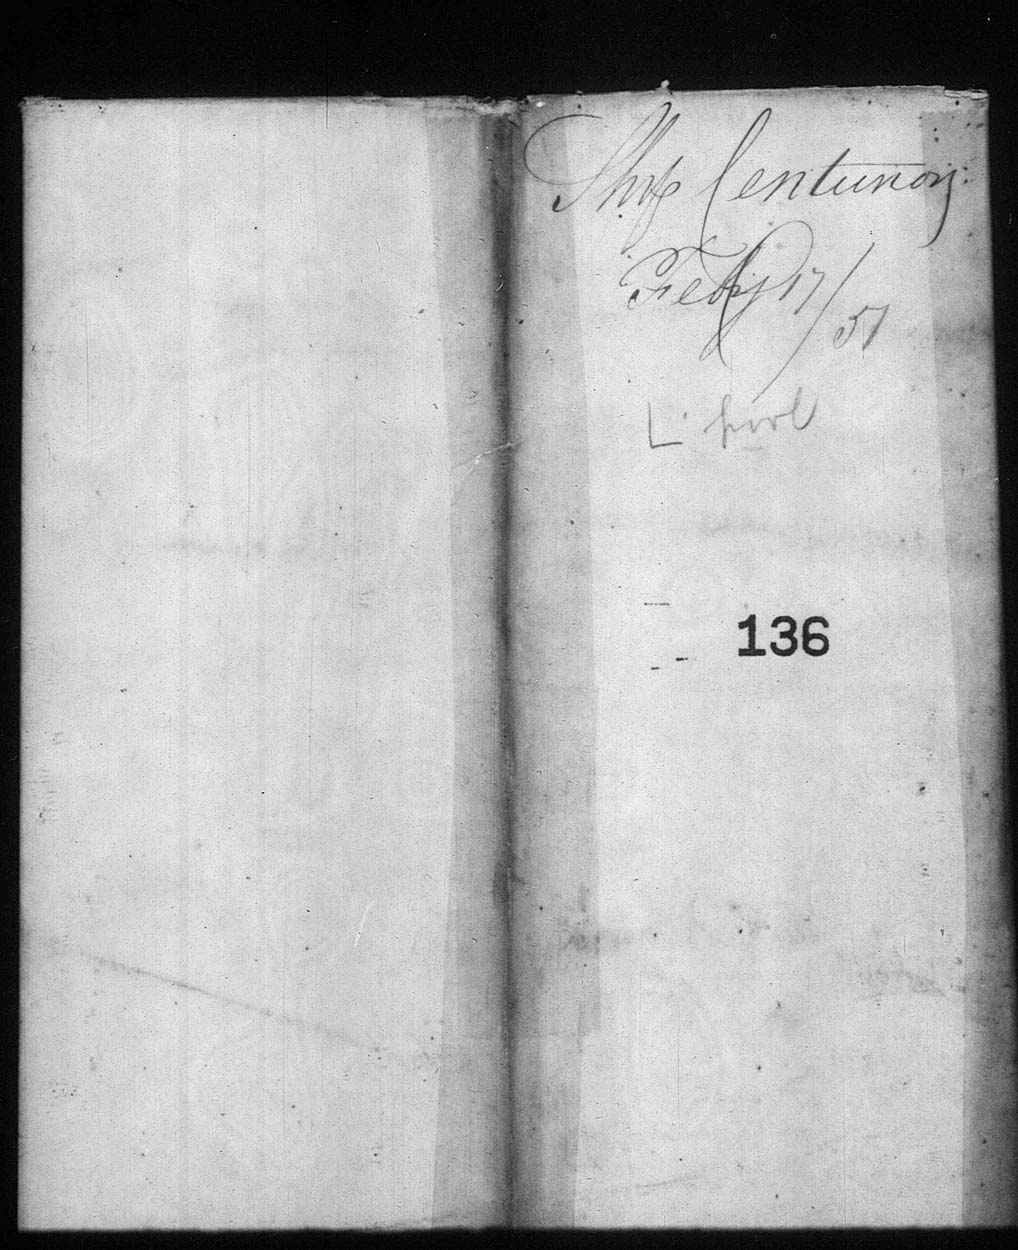 Ship Centurion:
Feby 17/51
L'pool
136